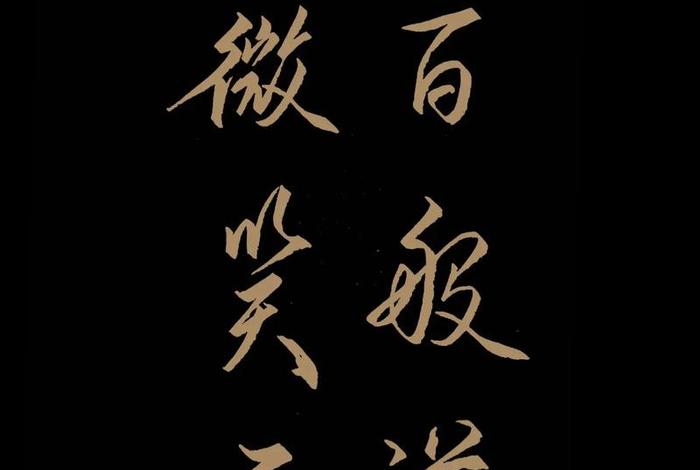 百般
微笑